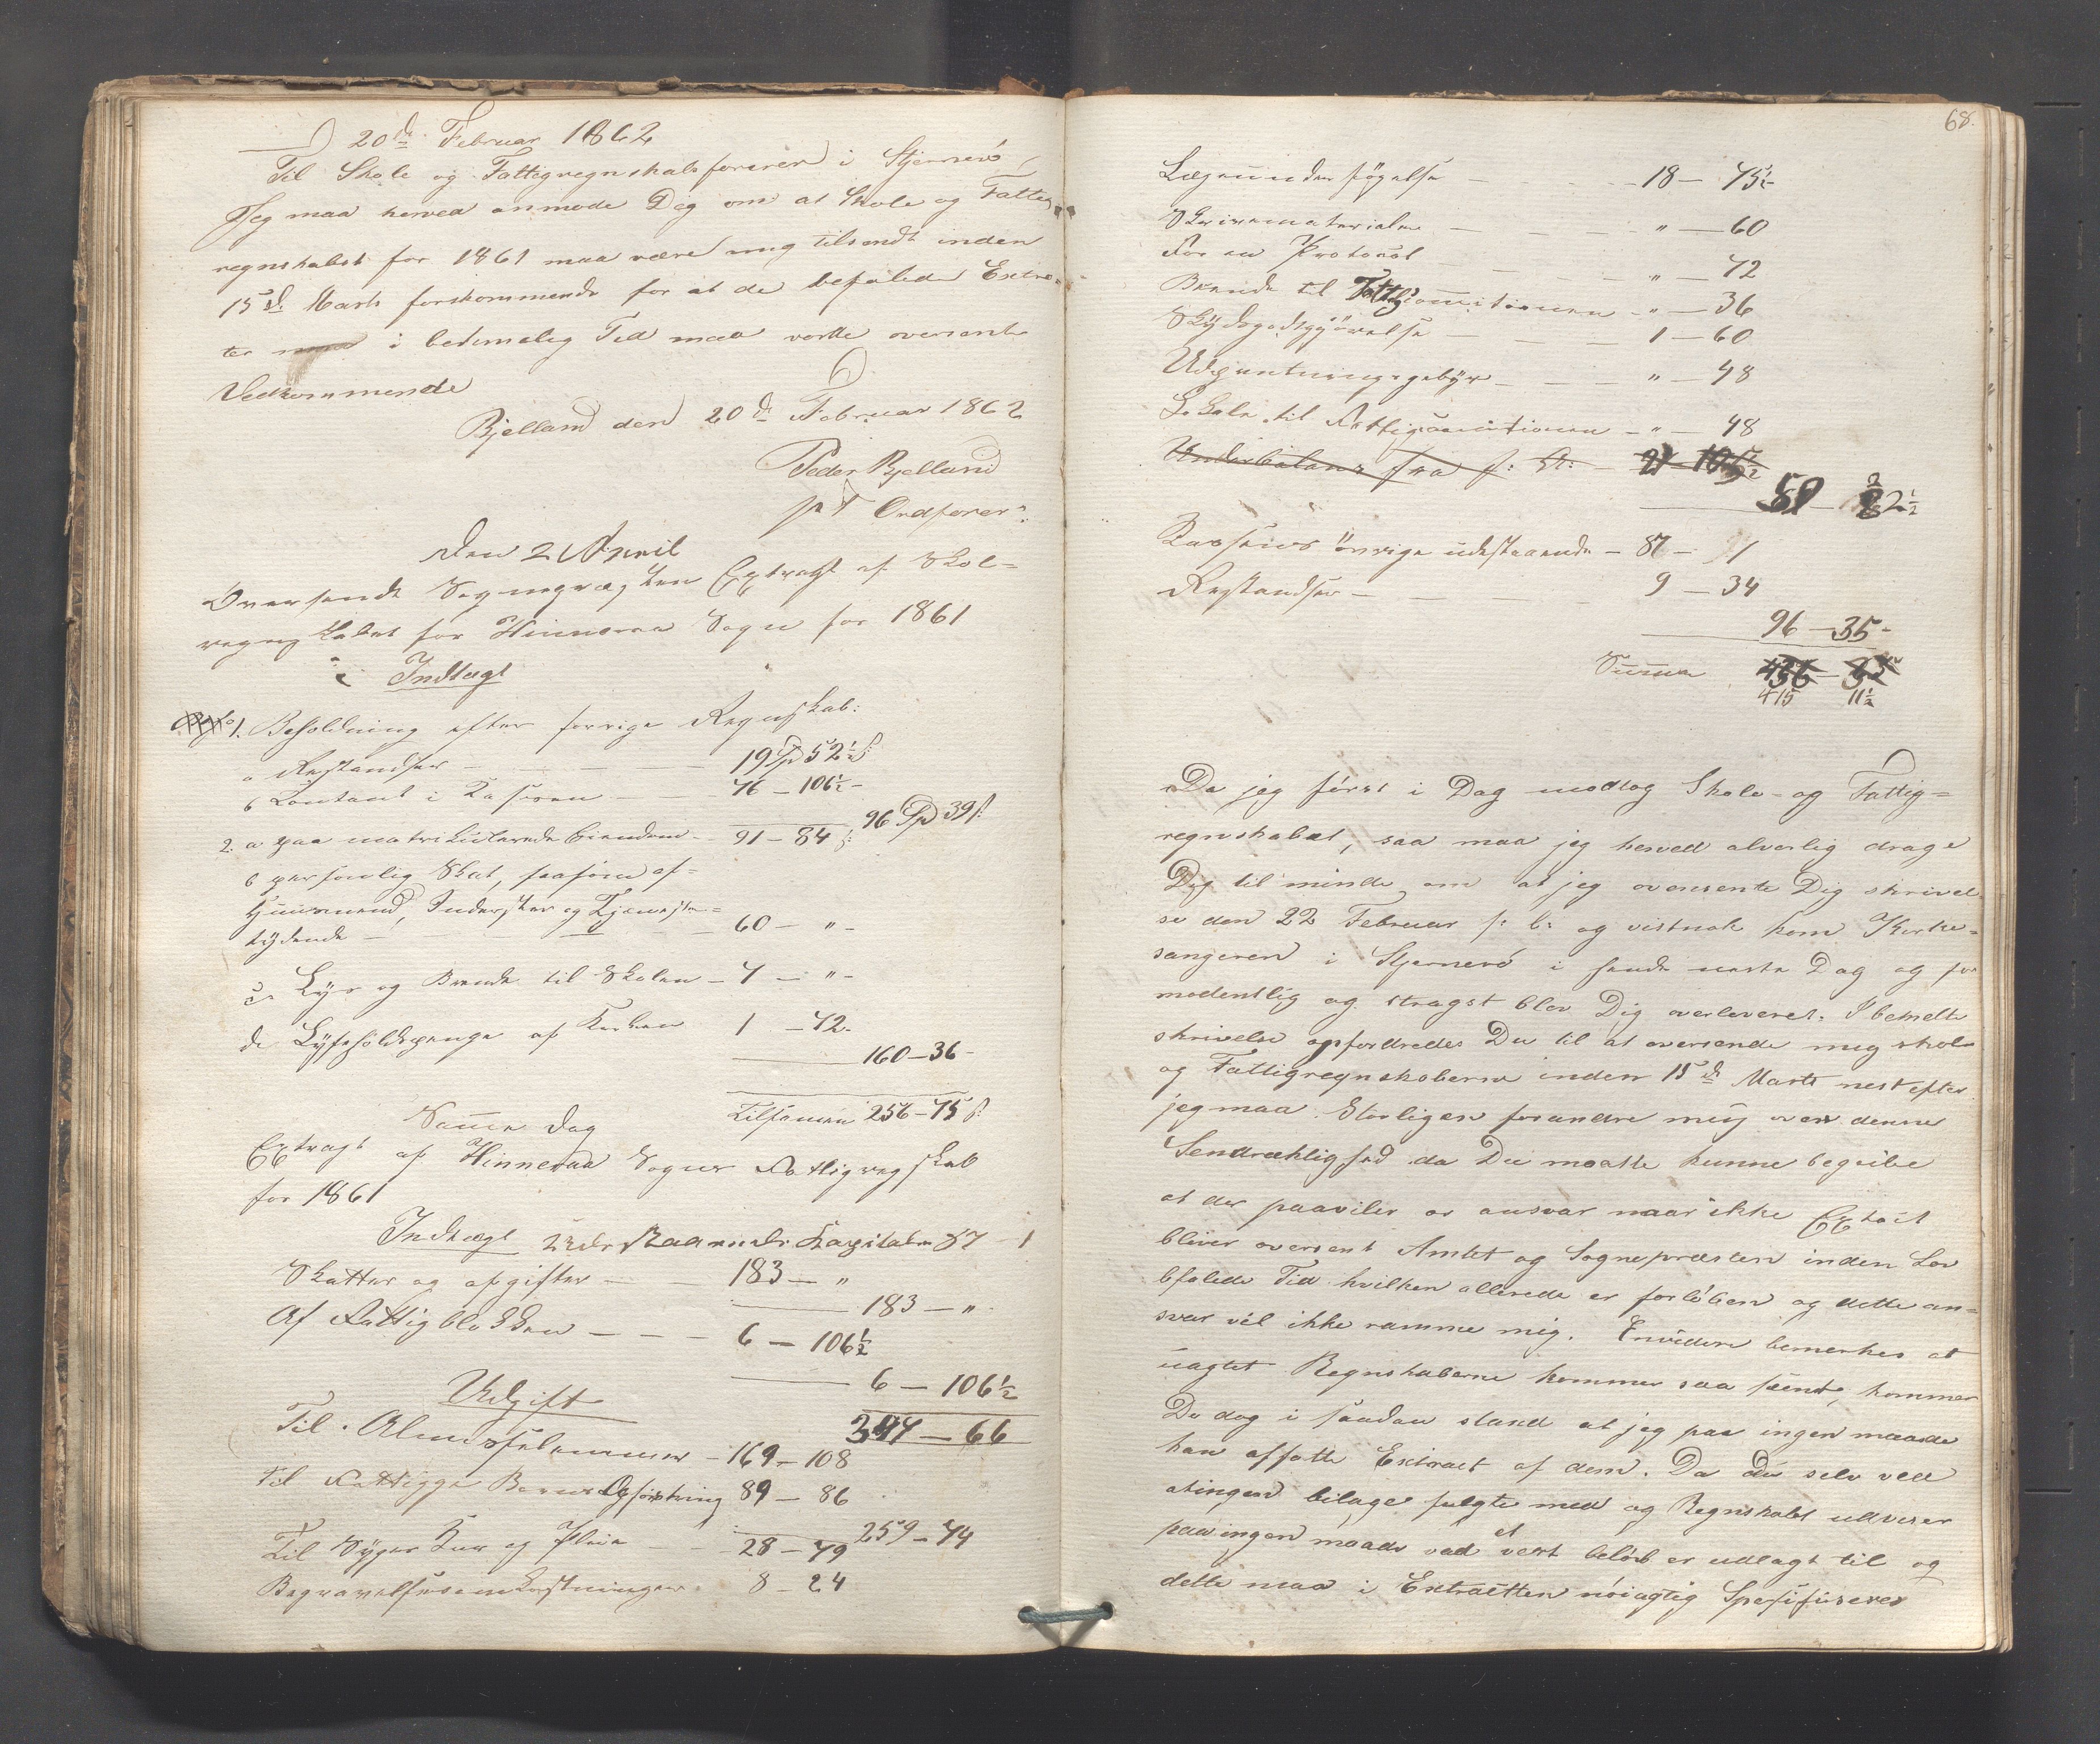 20de Februar 1862
Til Skole og Fattigregnskabsforeren i Stjernerö
Jeg maa herved anmode Dig om at Skole og Fattig
regnskabet for 1861 maa være mig tilsendt inden
15de Marts forskommende for at de befalede Extra-
ter i betimelig Tid maa vorde oversente
Vedkommende
Bjelland den 20de Februar 1862
Peder Bjelland
p T Ordforer
Den 2 April
Oversendt Sognepræsten Extragt af Skol=
regnskabet for Hinneraa Sogn for 1861
Indtægt
1. Beholdning efter forrige Regnskab:
a Restandser — 19 Spd 52½ s:
b Contant i Kassen — 76 — 106½ —
96 Spd 39 s:
2. a paa matrikulerede Eiendom — 91 — 84 s:
b personlig Skat, saasom af
Huusmænd, Inderster og Tjeneste=
tydende — 60 — " —
c Lys og Brende til Skolen — 7 — " —
d Lysholdspenge af Kirken 1 — 72 —
160 — 36 —
Tilsamen 256 — 75 s:
Samme Dag
Extragt af Hinneraa Sogns Fattigregskab
for 1861
Indtægt Kapitaler 87 — 1
Skatter og afgifter — 183 — "
183 — "
Af Fattigblokken — 6 — 106½
6 — 106½
347 — 66
Udgift
Til Almisselemmer — 169 — 108
Til Fattigge Børns Opfostring 89 — 86
259 — 74
Til Syges Kur og Pleie — 28 — 79
Begravelsesomkostninger 8 — 24
68.
Lægeundersøgelse — 18 — 75½
Skrivematerialer — " — 60
For en Protocol — " — 72
Brende til Fattigcommisionen — " — 36
Skydsgodtgjørelse — 1 — 60
Udpantningsgebyr — " — 48
Lokale til Fattigcommisionen — " — 48
Underbalance fra f: A: —
22½
Kassens övrige udestaaende — 87 — 1
Restandser — 9 — 34
96 — 35 —
Summa
415 11½
Da jeg först i Dag modtog Skole- og Fattig=
regnskabet, saa maa jeg herved alvorlig drage
Dig til minde om at jeg oversente Dig skrivel
se den 22 Februar og vistnok kom Kirke-
sangeren i Stjernerö i hende neste Dag og for
modentlig og stragst blev Dig overleveret. I bemelte
skrivelse opfordredes Du til at oversende mig skole
og Fattigregnskaberne inden 15de Marts nestefter
jeg maa Storligen forundre mig over denne
Sendrektighed da Du maatte kunne begribe
at der paaviler os ansvar naar ikke
bliver oversent Amtet og Sognepræsten inden Lov
befalede Tid hvilken allerede er forlöben og dette an=
svar vil ikke ramme mig. Envidere bemerkes at
uagtet Regnskaberne kommer saa sent, kommer
De dog i saadan stand at jeg paa ingen maade
kan affatte Extract af dem. Da du selv ved
atingen bilage fulgte med og Regnskabet udviser
paa ingen maade vad et vert belöb er udlagt til og
dette maa i Extractten nöiagtig Spesifiseres